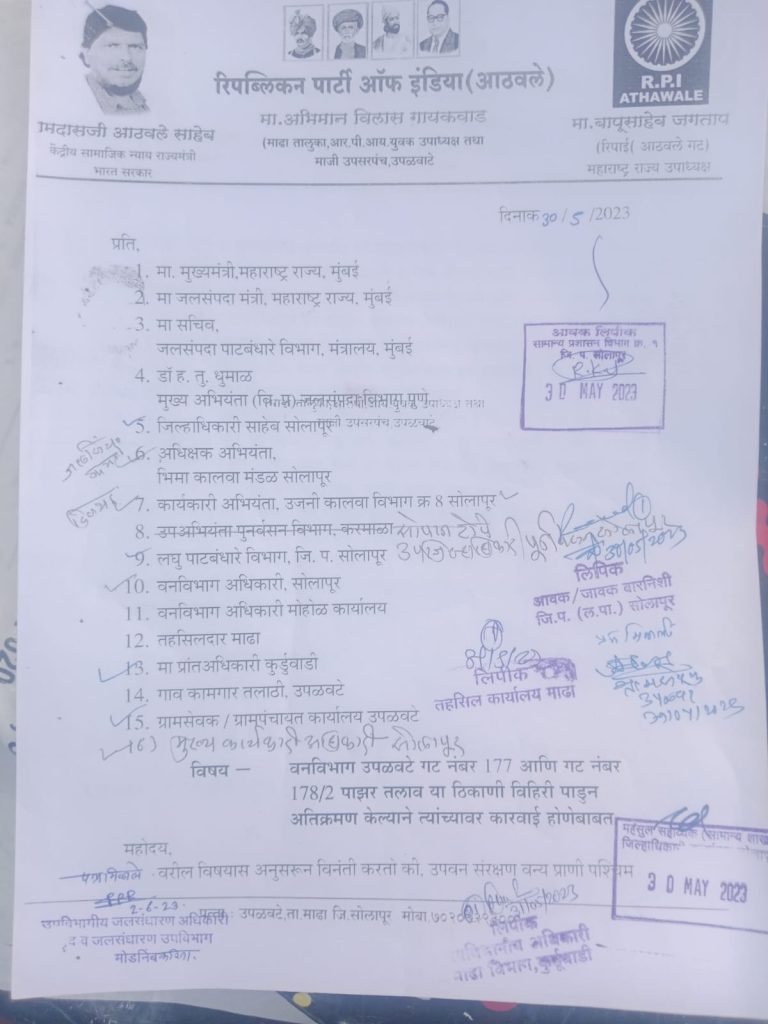 रिपब्लिकन पार्टी ऑफ इंडिया(आठवले)
R.P.I
ATHAWALE
मा.अभिमान विलास गायकवाड
(माढा तालुका,आर.पी.आय.युवक उपाध्यक्ष तथा
माजी उपसरपंच,उपळवाटे
मिदासजी आठवले साहेब
केंद्रीय सामाजिक न्याय राज्यमंत्री
भारत सरकार
मा.बापूसाहेब जगताप
(रिपाई( आठवले गट)
महाराष्ट्र राज्य उपाध्यक्ष
दिनाक 30/5/2023
प्रति,
1. मा. मुख्यमंत्री,महाराष्ट्र राज्य, मुंबई
2. मा जलसंपदा मंत्री, महाराष्ट्र राज्य, मुंबई
3. मा सचिव,
जलसंपदा पाटबंधारे विभाग, मंत्रालय, मुंबई
4. डॉ ह. तु. धुमाळ
मुख्य अभियंता (वि.प्र) जलसंपदा विभाग पुणे
5. जिल्हाधिकारी साहेब सोलापूर
6. अधिक्षक अभियंता,
भिमा कालवा मंडळ सोलापूर
7. कार्यकारी अभियंता, उजनी कालवा विभाग क्र 8 सोलापूर
8. उपअभियंता पुनर्वसन विभाग, करमाळा
9. लघु पाटबंधारे विभाग, जि. प. सोलापूर
10. वनविभाग अधिकारी, सोलापूर
11. वनविभाग अधिकारी मोहोळ कार्यालय
12. तहसिलदार माढा
13. मा प्रांतअधिकारी कुर्डुवाडी
14. गाव कामगार तलाठी, उपळवटे
15. ग्रामसेवक / ग्रामपंचायत कार्यालय उपळवटे
16) मुख्य कार्यकारी अधिकारी सोलापूर
आवक लिपीक
सामान्य प्रशासन विभाग क्र. १
जि. प. सोलापूर
30 MAY 2023
30/05/2023
लिपिक
आवक/जावक बारनिशी
जि.प. (ल.पा.) सोलापूर
लिपीक
तहसिल कार्यालय माढा
विषय – वनविभाग उपळवटे गट नंबर 177 आणि गट नंबर
178/2 पाझर तलाव या ठिकाणी विहिरी पाडुन
अतिक्रमण केल्याने त्यांच्यावर कारवाई होणेबाबत
महोदय,
वरील विषयास अनुसरून विनंती करतो की, उपवन संरक्षण वन्य प्राणी पश्चिम
महसूल सहाय्यक (सामान्य शाख
जिल्हाधिका
30 MAY 2023
पत्र मिळाले
2-6-23
उपविभागीय जलसंधारण अधिकारी
व जलसंधारण उपविभाग
मोडनिंब
उपळवटे,ता.माढा जि.सोलापूर मोबा.
लिपीक
माढा विभाग, कुर्डूवाडी